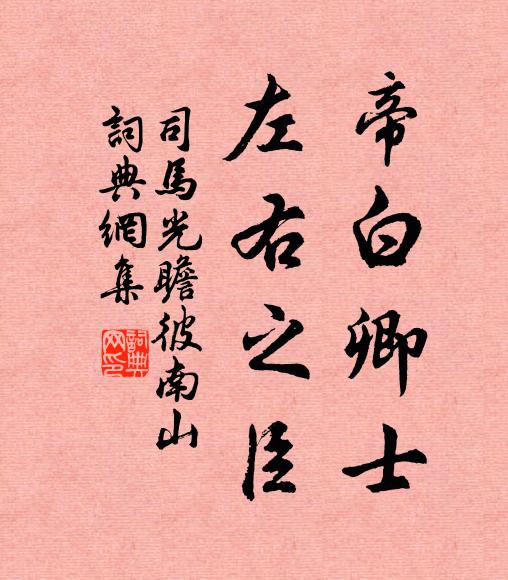 帝白卿士
左右之臣
司馬光瞻彼南山
詞典網集
詞典網印